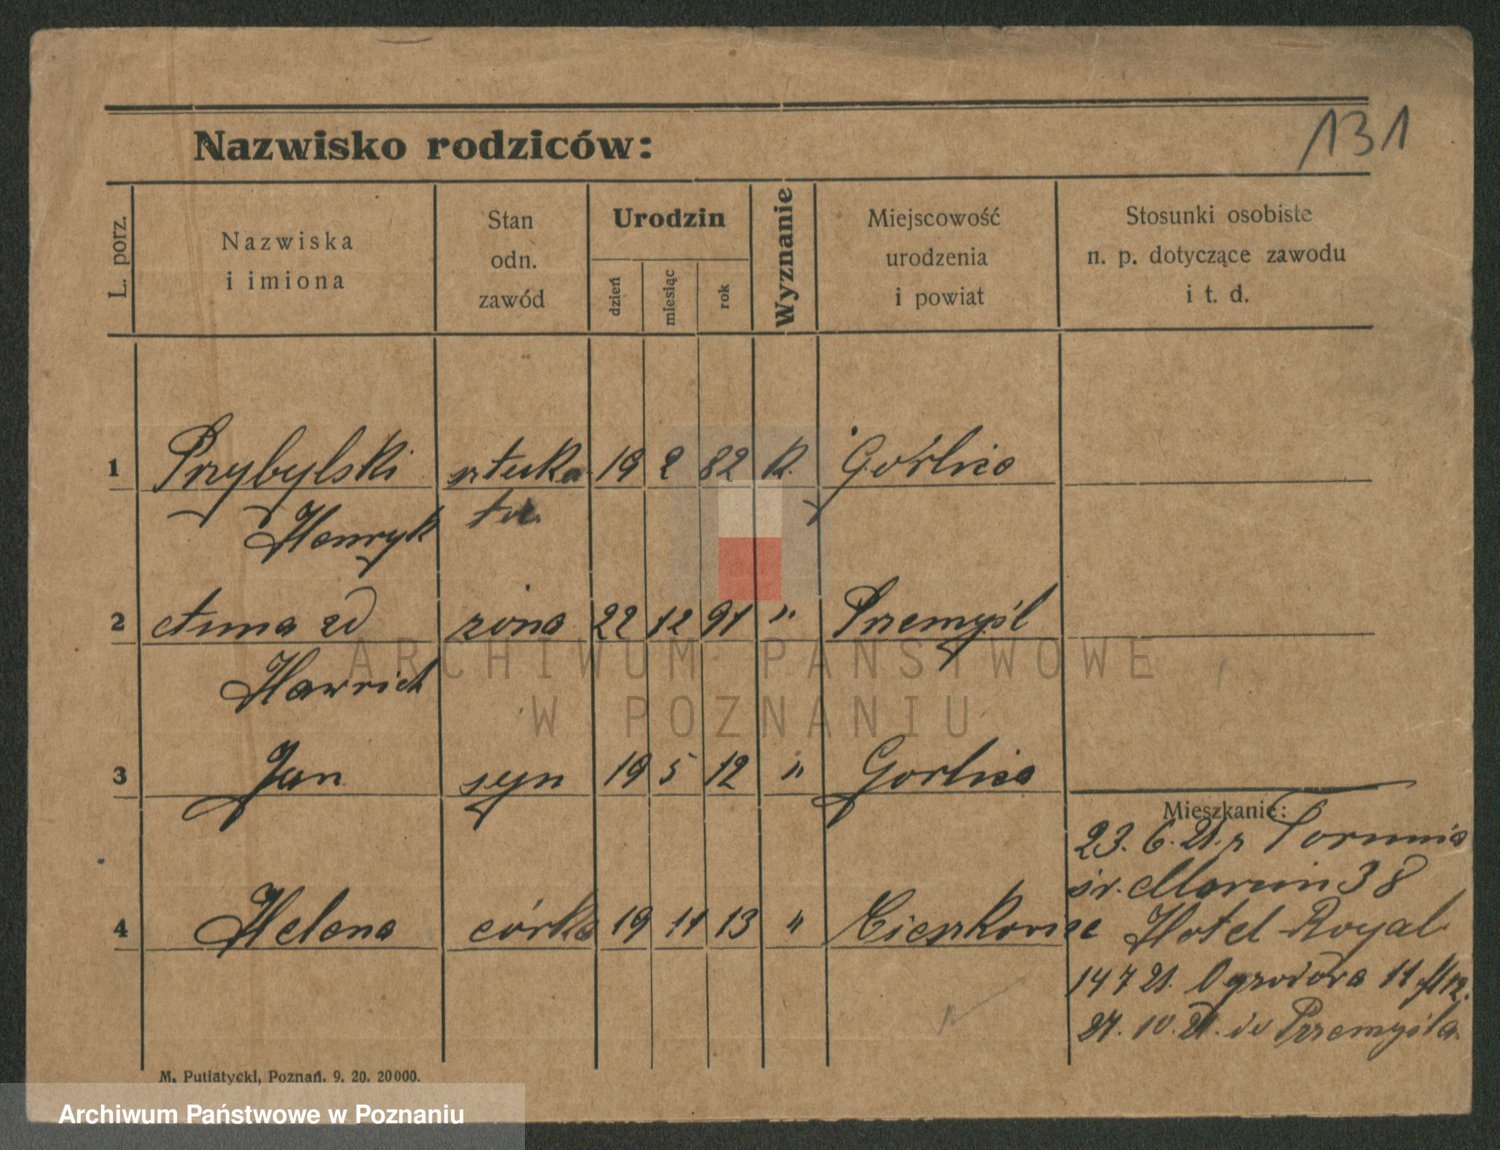 131
Nazwisko rodziców:
L. porz.
Nazwiska
i imiona
Stan
odn.
zawód
Urodzin
dzień
miesiąc
rok
Wyznanie
Miejscowość
urodzenia
i powiat
Stosunki osobiste
n. p. dotyczące zawodu
i t. d.
1 Przybylski sztuka 19 2 82 k. Gorlice
Henryk tor
2 Anna zd żona 22 12 91 " Przemyśl
Hawrich
3 Jan syn 19 5 12 " Gorlice
Mieszkanie:
23. 6. 21. z Torunia
św. Marcin 38
4 Helena córka 19 11 13 " Cieszkowice
Hotel Royal
14 7 21. Ogrodowa 11
27. 10. 21. do Przemyśla
M. Putiatycki, Poznań. 9. 20. 20000.
ARCHIWUM PAŃSTWOWE
W POZNANIU
Archiwum Państwowe w Poznaniu